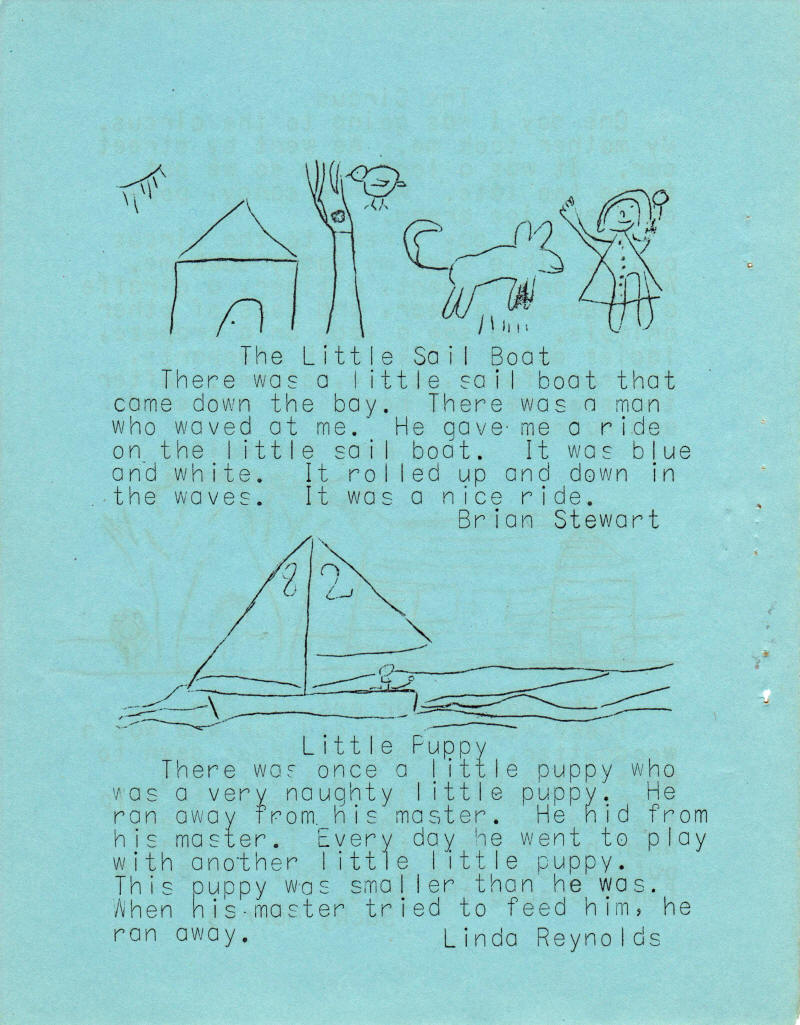 The Little Sail Boat
There was a little sail boat that
came down the bay. There was a man
who waved at me. He gave me a ride
on the little sail boat. It was blue
and white. It rolled up and down in
the waves. It was a nice ride.
Brian Stewart
82
Little Puppy
There was once a little puppy who
was a very naughty little puppy. He
ran away from his master. He hid from
his master. Every day he went to play
with another little little puppy.
This puppy was smaller than he was.
When his master tried to feed him, he
ran away. Linda Reynolds